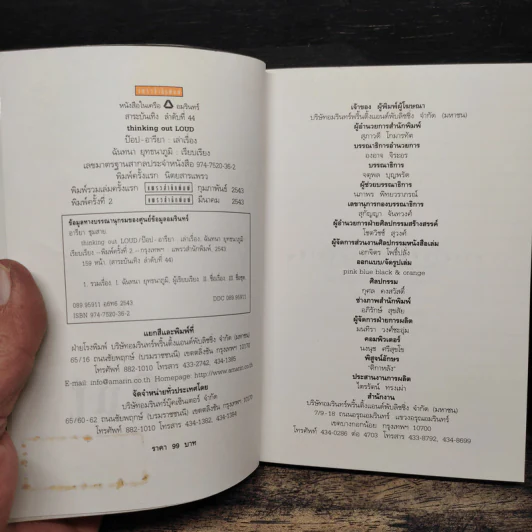 แพรวสำนักพิมพ์
หนังสือในเครือ อมรินทร์
สาระบันเทิง ลำดับที่ 44
thinking out LOUD
ป๊อป-อารียา : เล่าเรื่อง
ฉันทนา ยุทธนาภูมิ : เรียบเรียง
เลขมาตรฐานสากลประจำหนังสือ 974-7520-36-2
พิมพ์ครั้งแรก นิตยสารแพรว
พิมพ์รวมเล่มครั้งแรก แพรวสำนักพิมพ์ กุมภาพันธ์ 2543
พิมพ์ครั้งที่ 2 แพรวสำนักพิมพ์ มีนาคม 2543
ข้อมูลทางบรรณานุกรมของศูนย์ข้อมูลอมรินทร์
อารียา ชุมสาย
thinking out LOUD/ป๊อป-อารียา : เล่าเรื่อง, ฉันทนา ยุทธนาภูมิ
เรียบเรียง.-พิมพ์ครั้งที่ 2.--กรุงเทพฯ : แพรวสำนักพิมพ์, 2543
159 หน้า (สาระบันเทิง ลำดับที่ 44)
1. รวมเรื่อง. I. ฉันทนา ยุทธนาภูมิ, ผู้เรียบเรียง. II. ชื่อเรื่อง. III. ชื่อชุด.
089.95911 2543
DDC 089.95911
ISBN 974-7520-36-2
แยกสีและพิมพ์ที่
ฝ่ายโรงพิมพ์ บริษัทอมรินทร์พริ้นติ้งแอนด์พับลิชชิ่ง จำกัด (มหาชน)
65/16 ถนนชัยพฤกษ์ (บรมราชชนนี) เขตตลิ่งชัน กรุงเทพฯ 10170
โทรศัพท์ 882-1010 โทรสาร 433-2742, 434-1385
E-mail: info@amarin.co.th Homepage: http://www.amarin.co.th
จัดจำหน่ายทั่วประเทศโดย
บริษัทอมรินทร์บุ๊คเซ็นเตอร์ จำกัด
65/60-62 ถนนชัยพฤกษ์ (บรมราชชนนี) เขตตลิ่งชัน กรุงเทพฯ 10170
โทรศัพท์ 882-1010 โทรสาร 434-1382, 434-1384
ราคา 99 บาท
เจ้าของ ผู้พิมพ์ผู้โฆษณา
บริษัทอมรินทร์พริ้นติ้งแอนด์พับลิชชิ่ง จำกัด (มหาชน)
ผู้อำนวยการสำนักพิมพ์
สุภาวดี โกมารทัต
บรรณาธิการอำนวยการ
องอาจ จิระอร
บรรณาธิการ
จตุพล บุญพรัด
ผู้ช่วยบรรณาธิการ
นภาพร พิทยวราภรณ์
เลขานุการกองบรรณาธิการ
สุกัญญา จันทวงศ์
ผู้อำนวยการฝ่ายศิลปกรรมสร้างสรรค์
โชควิชช์ สุวงศ์
ผู้จัดการส่วนงานศิลปกรรมหนังสือเล่ม
เอกจิตร โพธิ์ปลั่ง
ออกแบบ/จัดรูปเล่ม
pink blue black & orange
ศิลปกรรม
กุศล คงสวัสดิ์
ช่างภาพสำนักพิมพ์
อภิรักษ์ สุขสัย
ผู้จัดการฝ่ายการผลิต
มนทิรา วงศ์ชะอุ่ม
คอมพิวเตอร์
นงนุช ศรีสุขใช
พิสูจน์อักษร
"สิการหลัง"
ประสานงานการผลิต
ไตรรัตน์ ทรงเผ่า
สำนักงาน
บริษัทอมรินทร์พริ้นติ้งแอนด์พับลิชชิ่ง จำกัด (มหาชน)
7/9-18 ถนนอรุณอมรินทร์ แขวงอรุณอมรินทร์
เขตบางกอกน้อย กรุงเทพฯ 10700
โทรศัพท์ 434-0286 ต่อ 4703 โทรสาร 433-8792, 434-8699